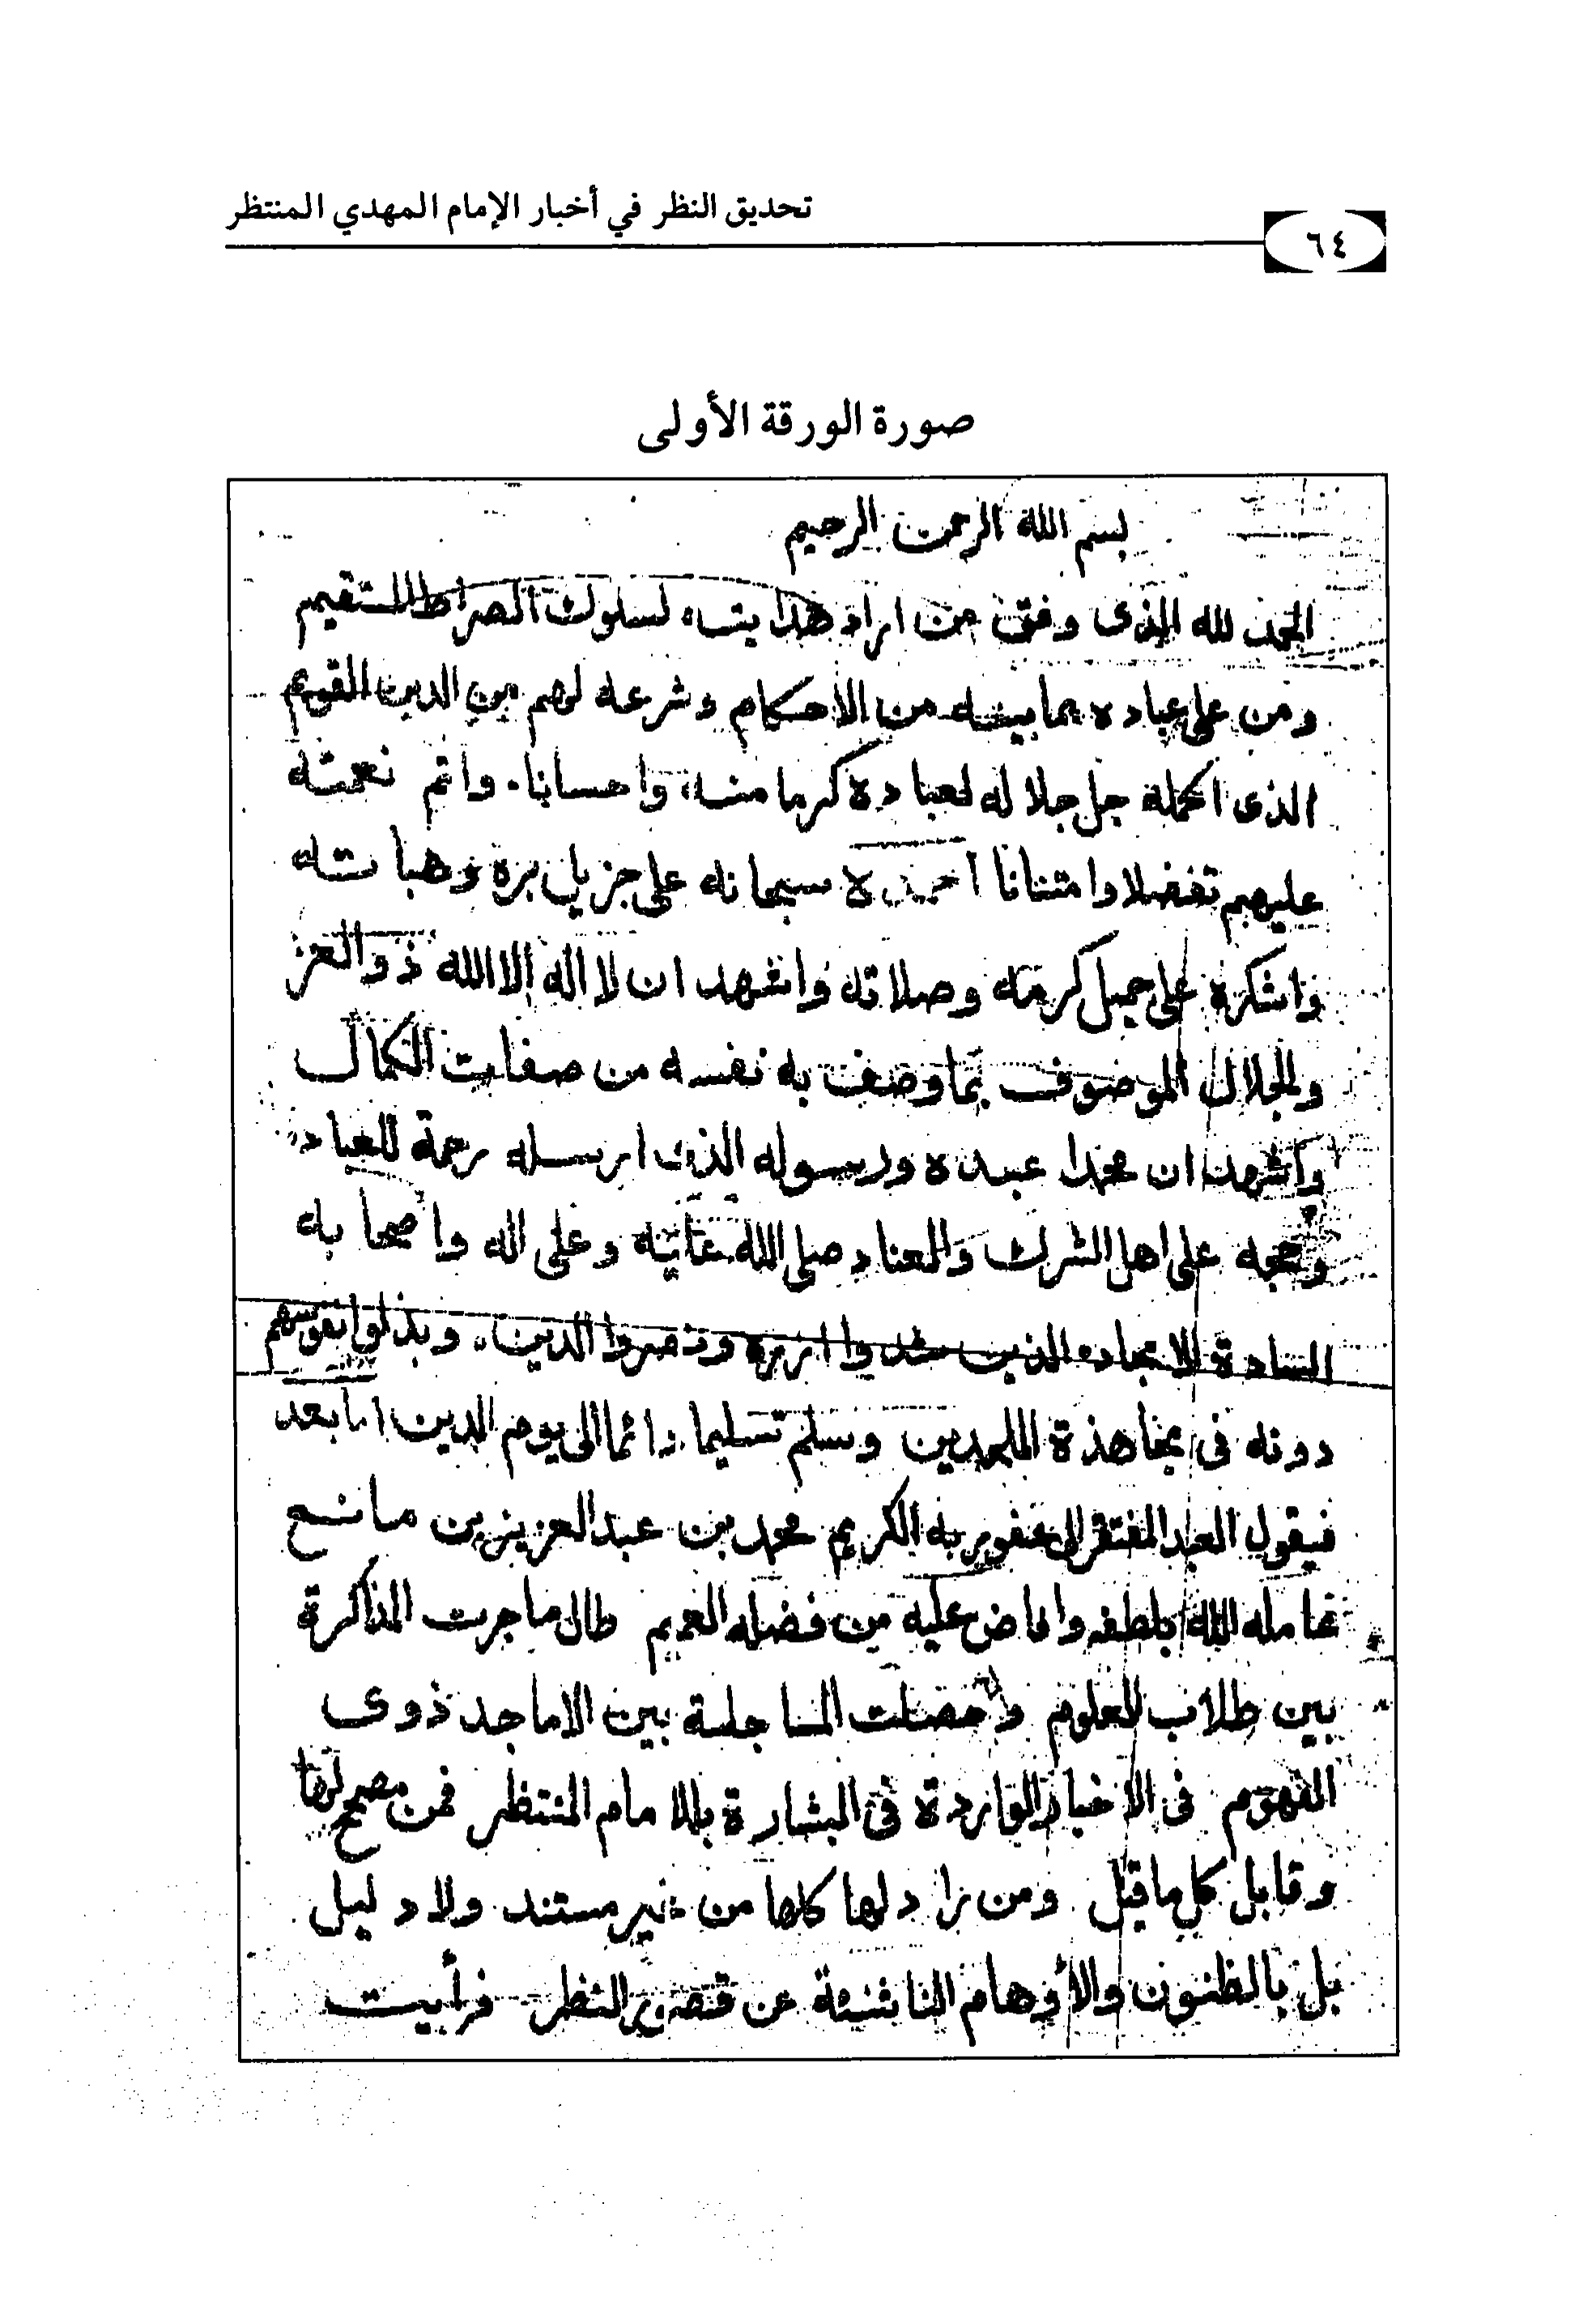 تحديق النظر في أخبار الإمام المهدي المنتظر
٦٤
صورة الورقة الأولى
بسم الله الرحمن الرحيم
الحمد لله الذى وفق من اراد هدايته لسلوك الصراط المستقيم
ومن على عباده بما بينه من الاحكام وشرعه لهم من الدين القويم
الذى اكمله جل جلاله لعباده كرما منه، واحسانا. واتم نعمته
عليهم تفضلا وامتنانا احمده سبحانه على جزيل بره وهباته
واشكره على جميل كرمه وصلاته واشهد ان لا اله الا الله ذو العز
والجلال الموصوف بما وصف به نفسه من صفات الكمال
واشهد ان محمدا عبده ورسوله الذى ارسله رحمة للعباد
وحجه على اهل الشرك والعناد صلى الله عليه وعلى اله واصحابه
السادة الامجاد الذين شدوا ازره ونصروا الدين. وبذلوا نفوسهم
دونه فى مجاهدة الملحدين وسلم تسليما دائما الى يوم الدين اما بعد
فيقول العبد المفتقر الى عفو ربه الكريم محمد بن عبد العزيز بن مانع
عامله الله بلطفه وافاض عليه من فضله العميم طال ما جرت المذاكرة
بين طلاب العلوم وحصلت المساجلة بين الاماجد ذوى
الفهوم فى الاخبار الواردة فى البشارة بالامام المنتظر فمن مصحح لها
وقابل كل ما قيل ومن راد لها كلها من غير مستند ولا دليل
بل بالظنون والأوهام الناشئة عن قصور النظر فرأيت